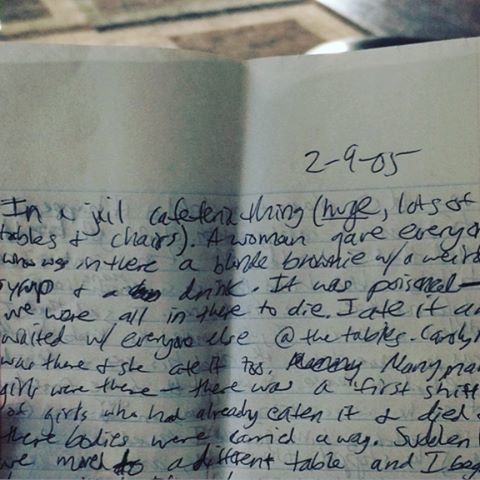 2-9-05
In a jail cafeteria thing (huge, lots of
tables & chairs). A woman gave everyon
who was in there a blonde brownie w/a weird
syrup & a drink. It was poisoned—
we were all in there to die. I ate it an
waited w/ everyone else @ the tables. Carolyn
was there & she ate it too. Many man
girls were there + there was a first shift
of girls who had already eaten it & died &
there bodies were carried away. Sudden
we moved to a different table and I beg